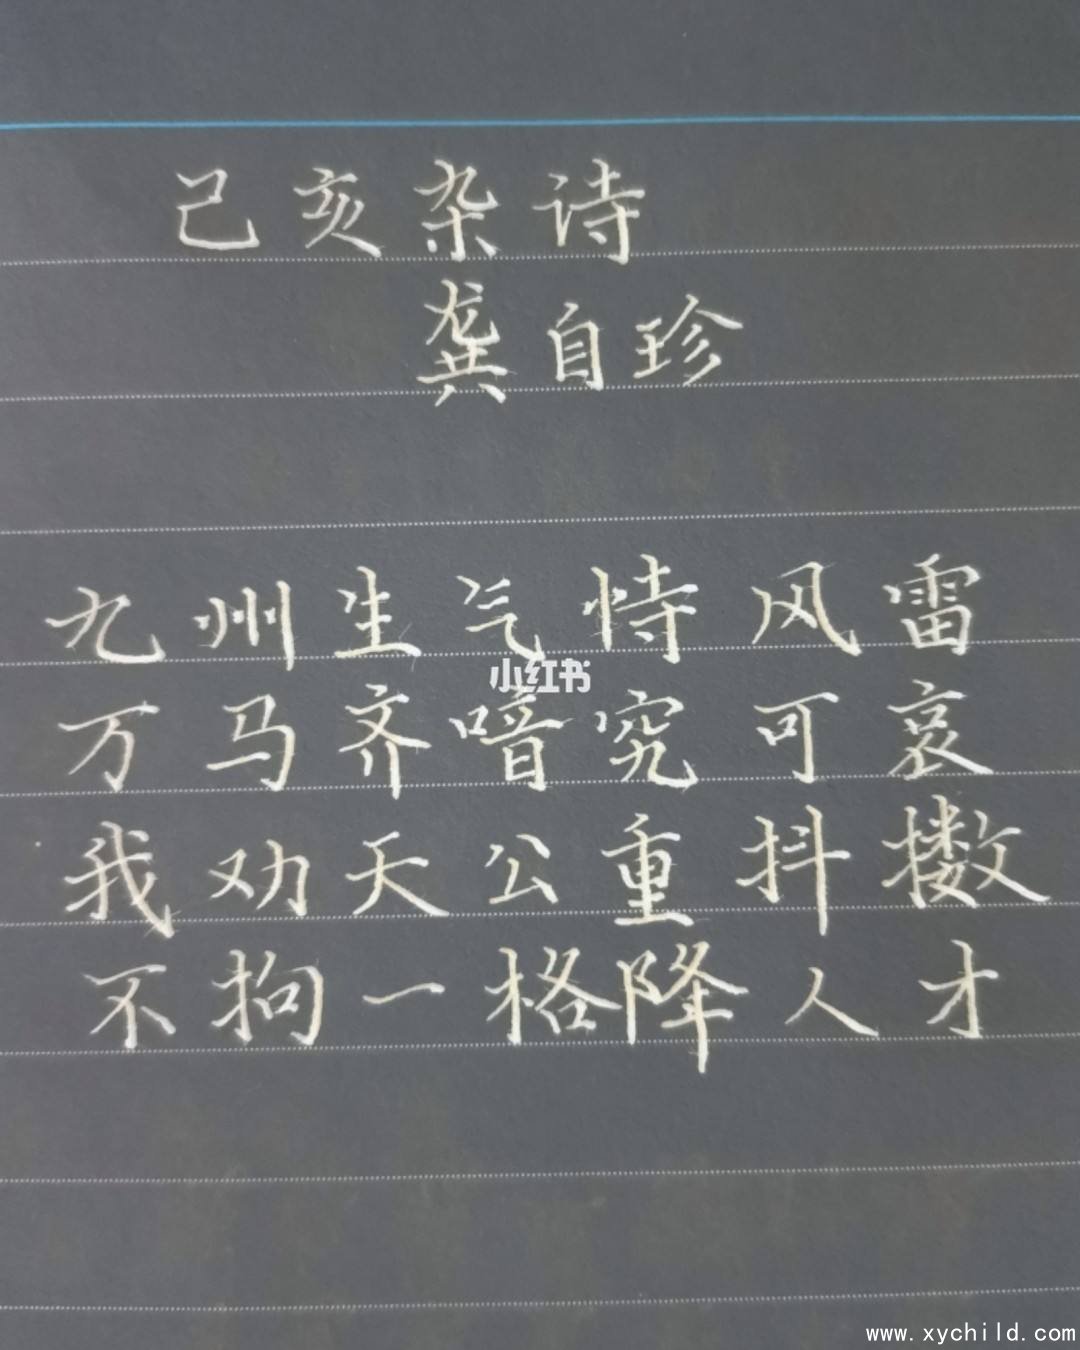 己亥杂诗
龚自珍
九州生气恃风雷
小红书
万马齐喑究可哀
我劝天公重抖擞
不拘一格降人才
www.xychild.com